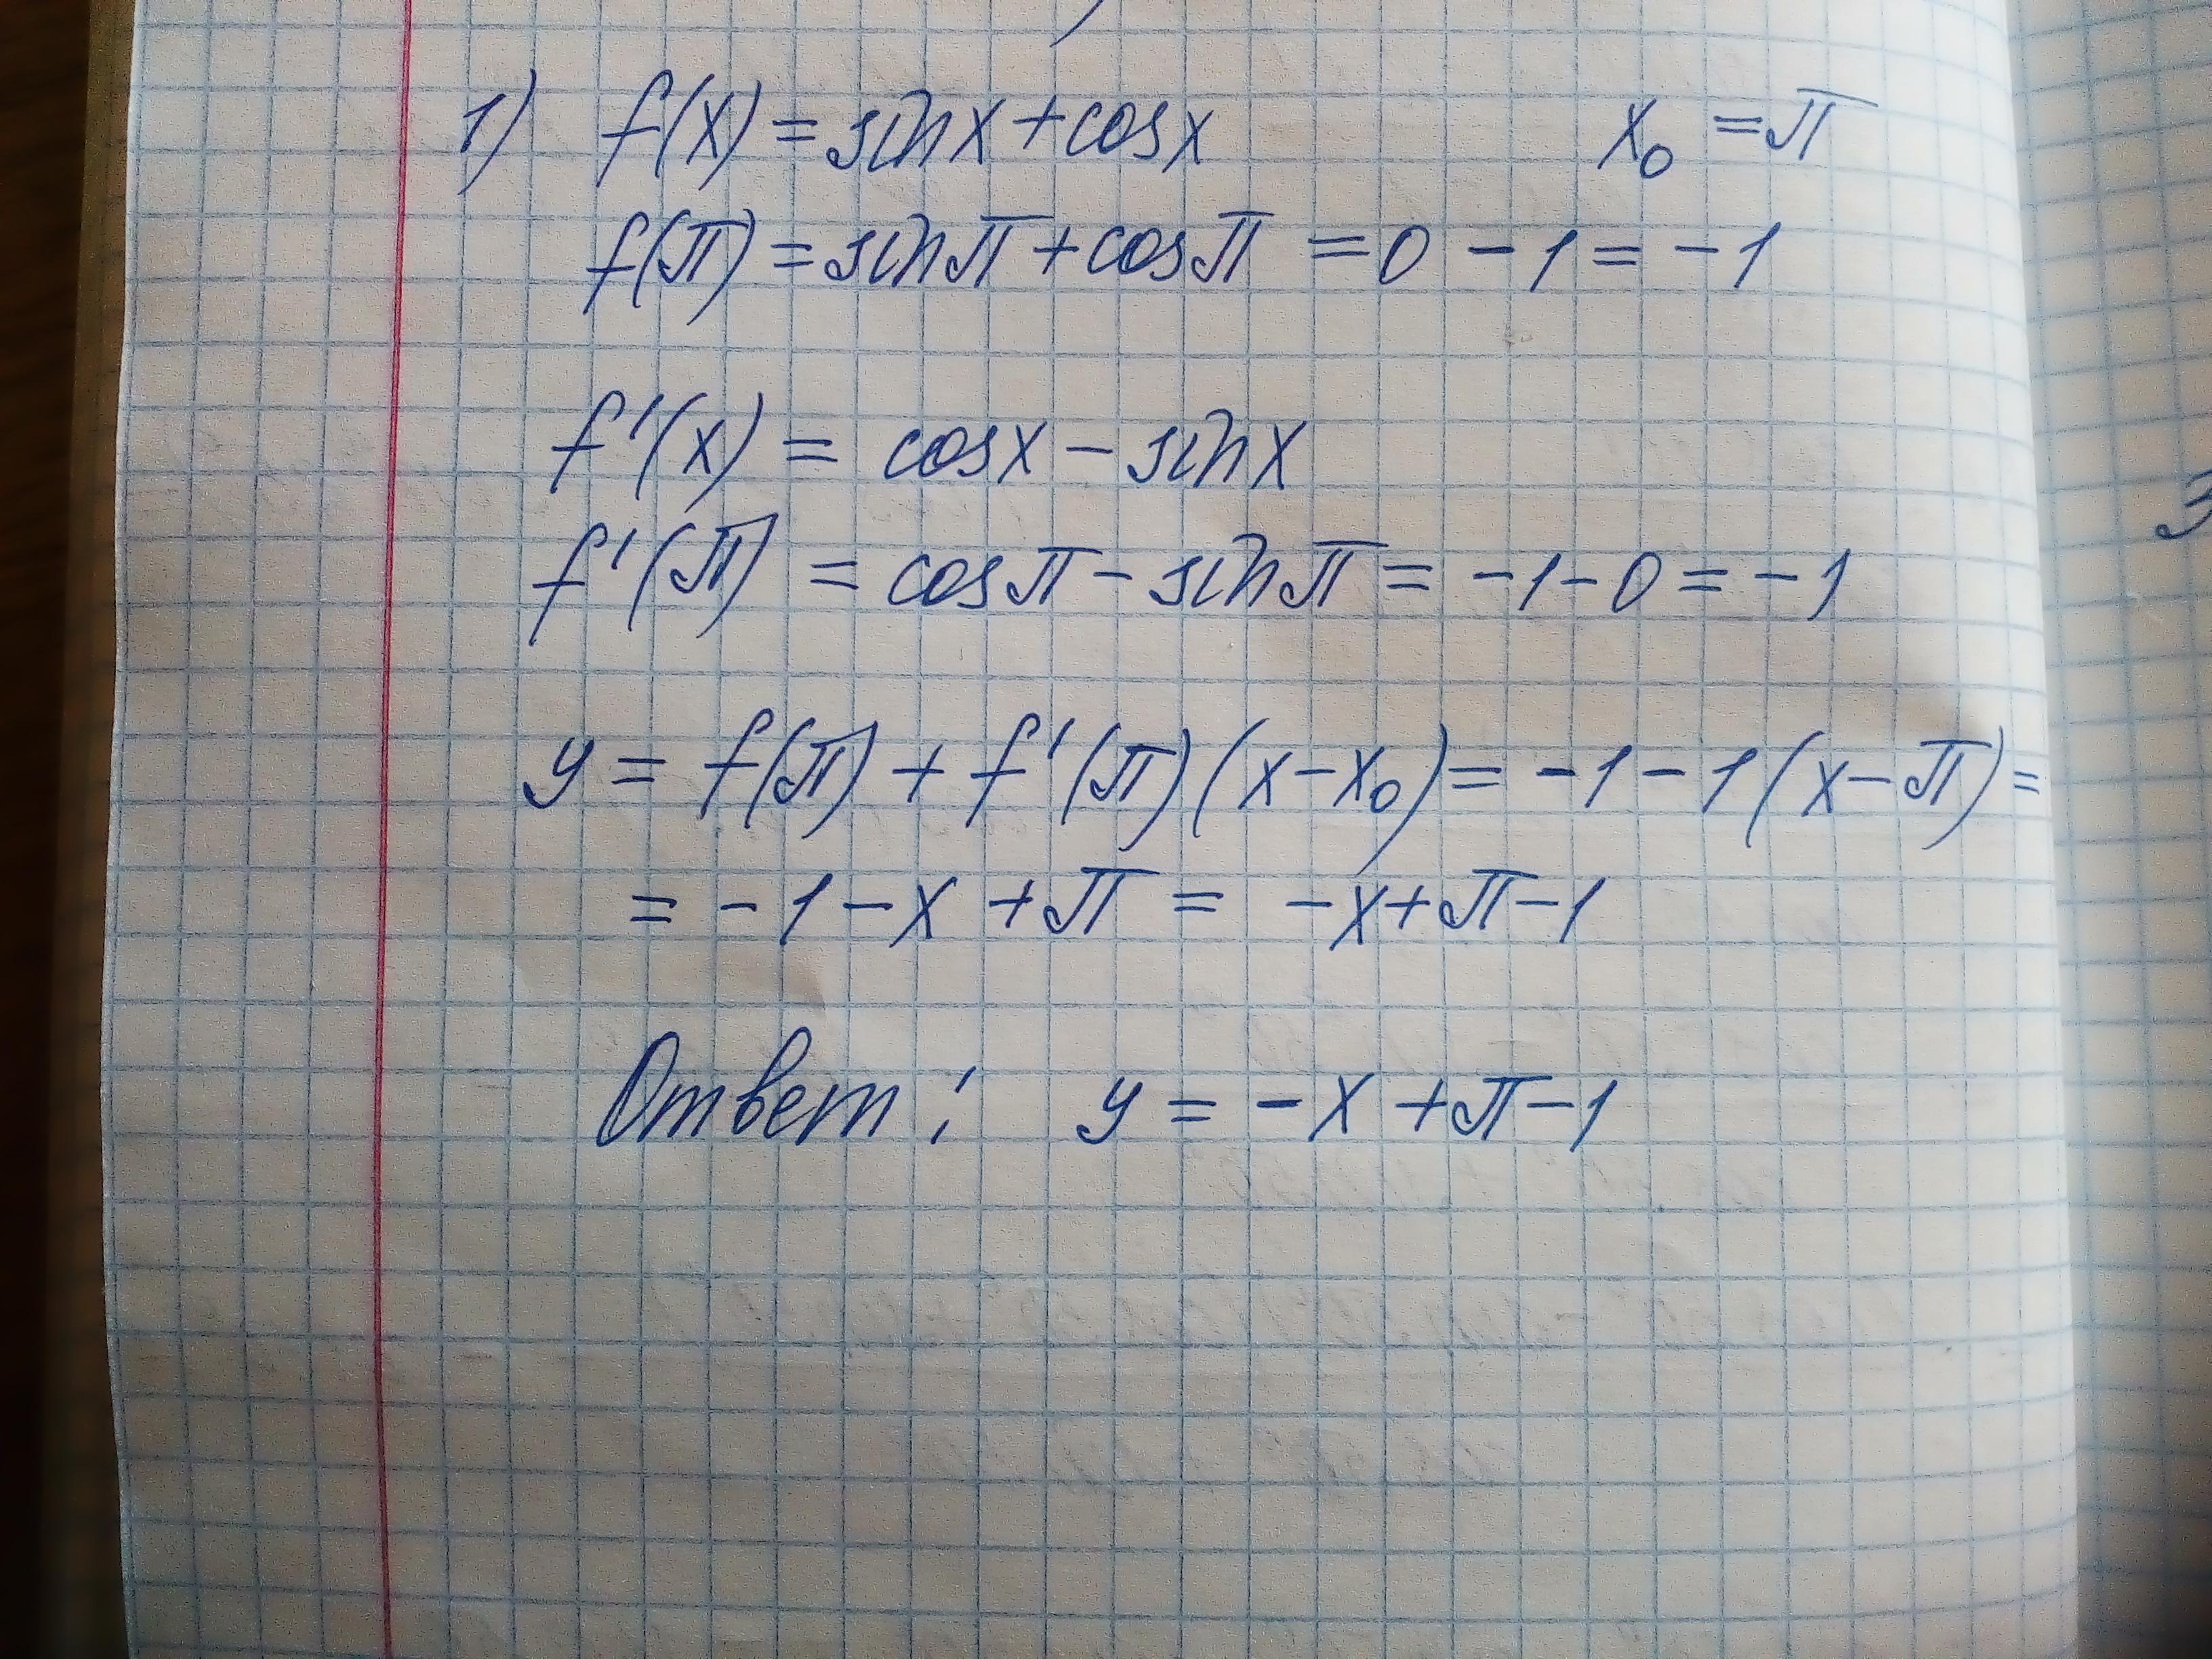 1) f(x) = sinx + cosx x₀ = π
f(π) = sinπ + cosπ = 0 - 1 = -1
f'(x) = cosx - sinx
f'(π) = cosπ - sinπ = -1 - 0 = -1
y = f(π) + f'(π)(x - x₀) = -1 - 1(x - π) =
= -1 - x + π = -x + π - 1
Ответ: y = -x + π - 1
3